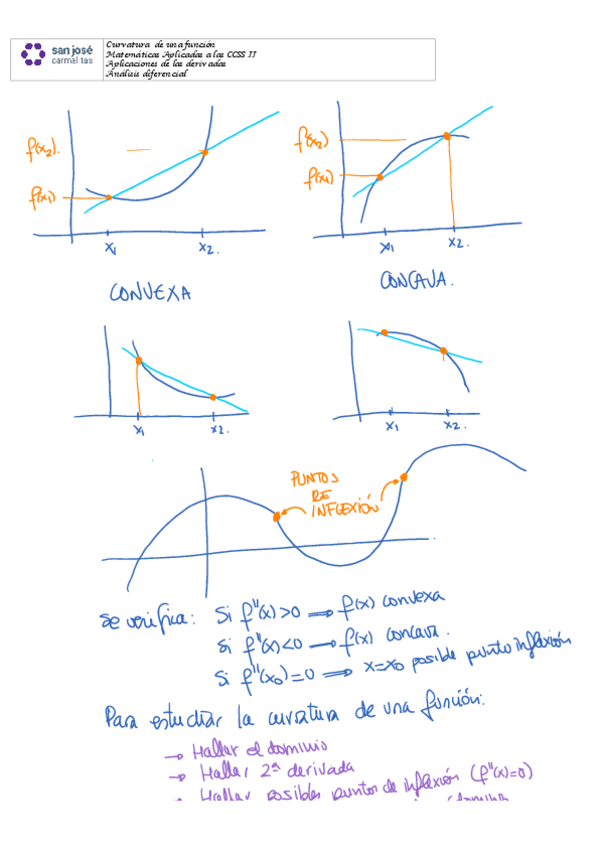 san josé
carmelitas
Curvatura de una función
Matemáticas Aplicadas a las CCSS II
Aplicaciones de las derivadas
Análisis diferencial
f(x2).
f(x1)
x1
x2.
CONVEXA
f(x2)
f(x1)
x1
x2.
CONCAVA.
x1
x2.
x1
x2.
PUNTOS
DE
INFLEXIÓN
Se verifica: Si f''(x)>0 ⟹ f(x) convexa
Si f''(x)<0 ⟹ f(x) concava.
Si f''(x0)=0 ⟹ x=x0 posible punto inflexión
Para estudiar la curvatura de una función:
→ Hallar el dominio
→ Hallar 2ª derivada
→ Hallar posibles puntos de inflexión (f''(x)=0)